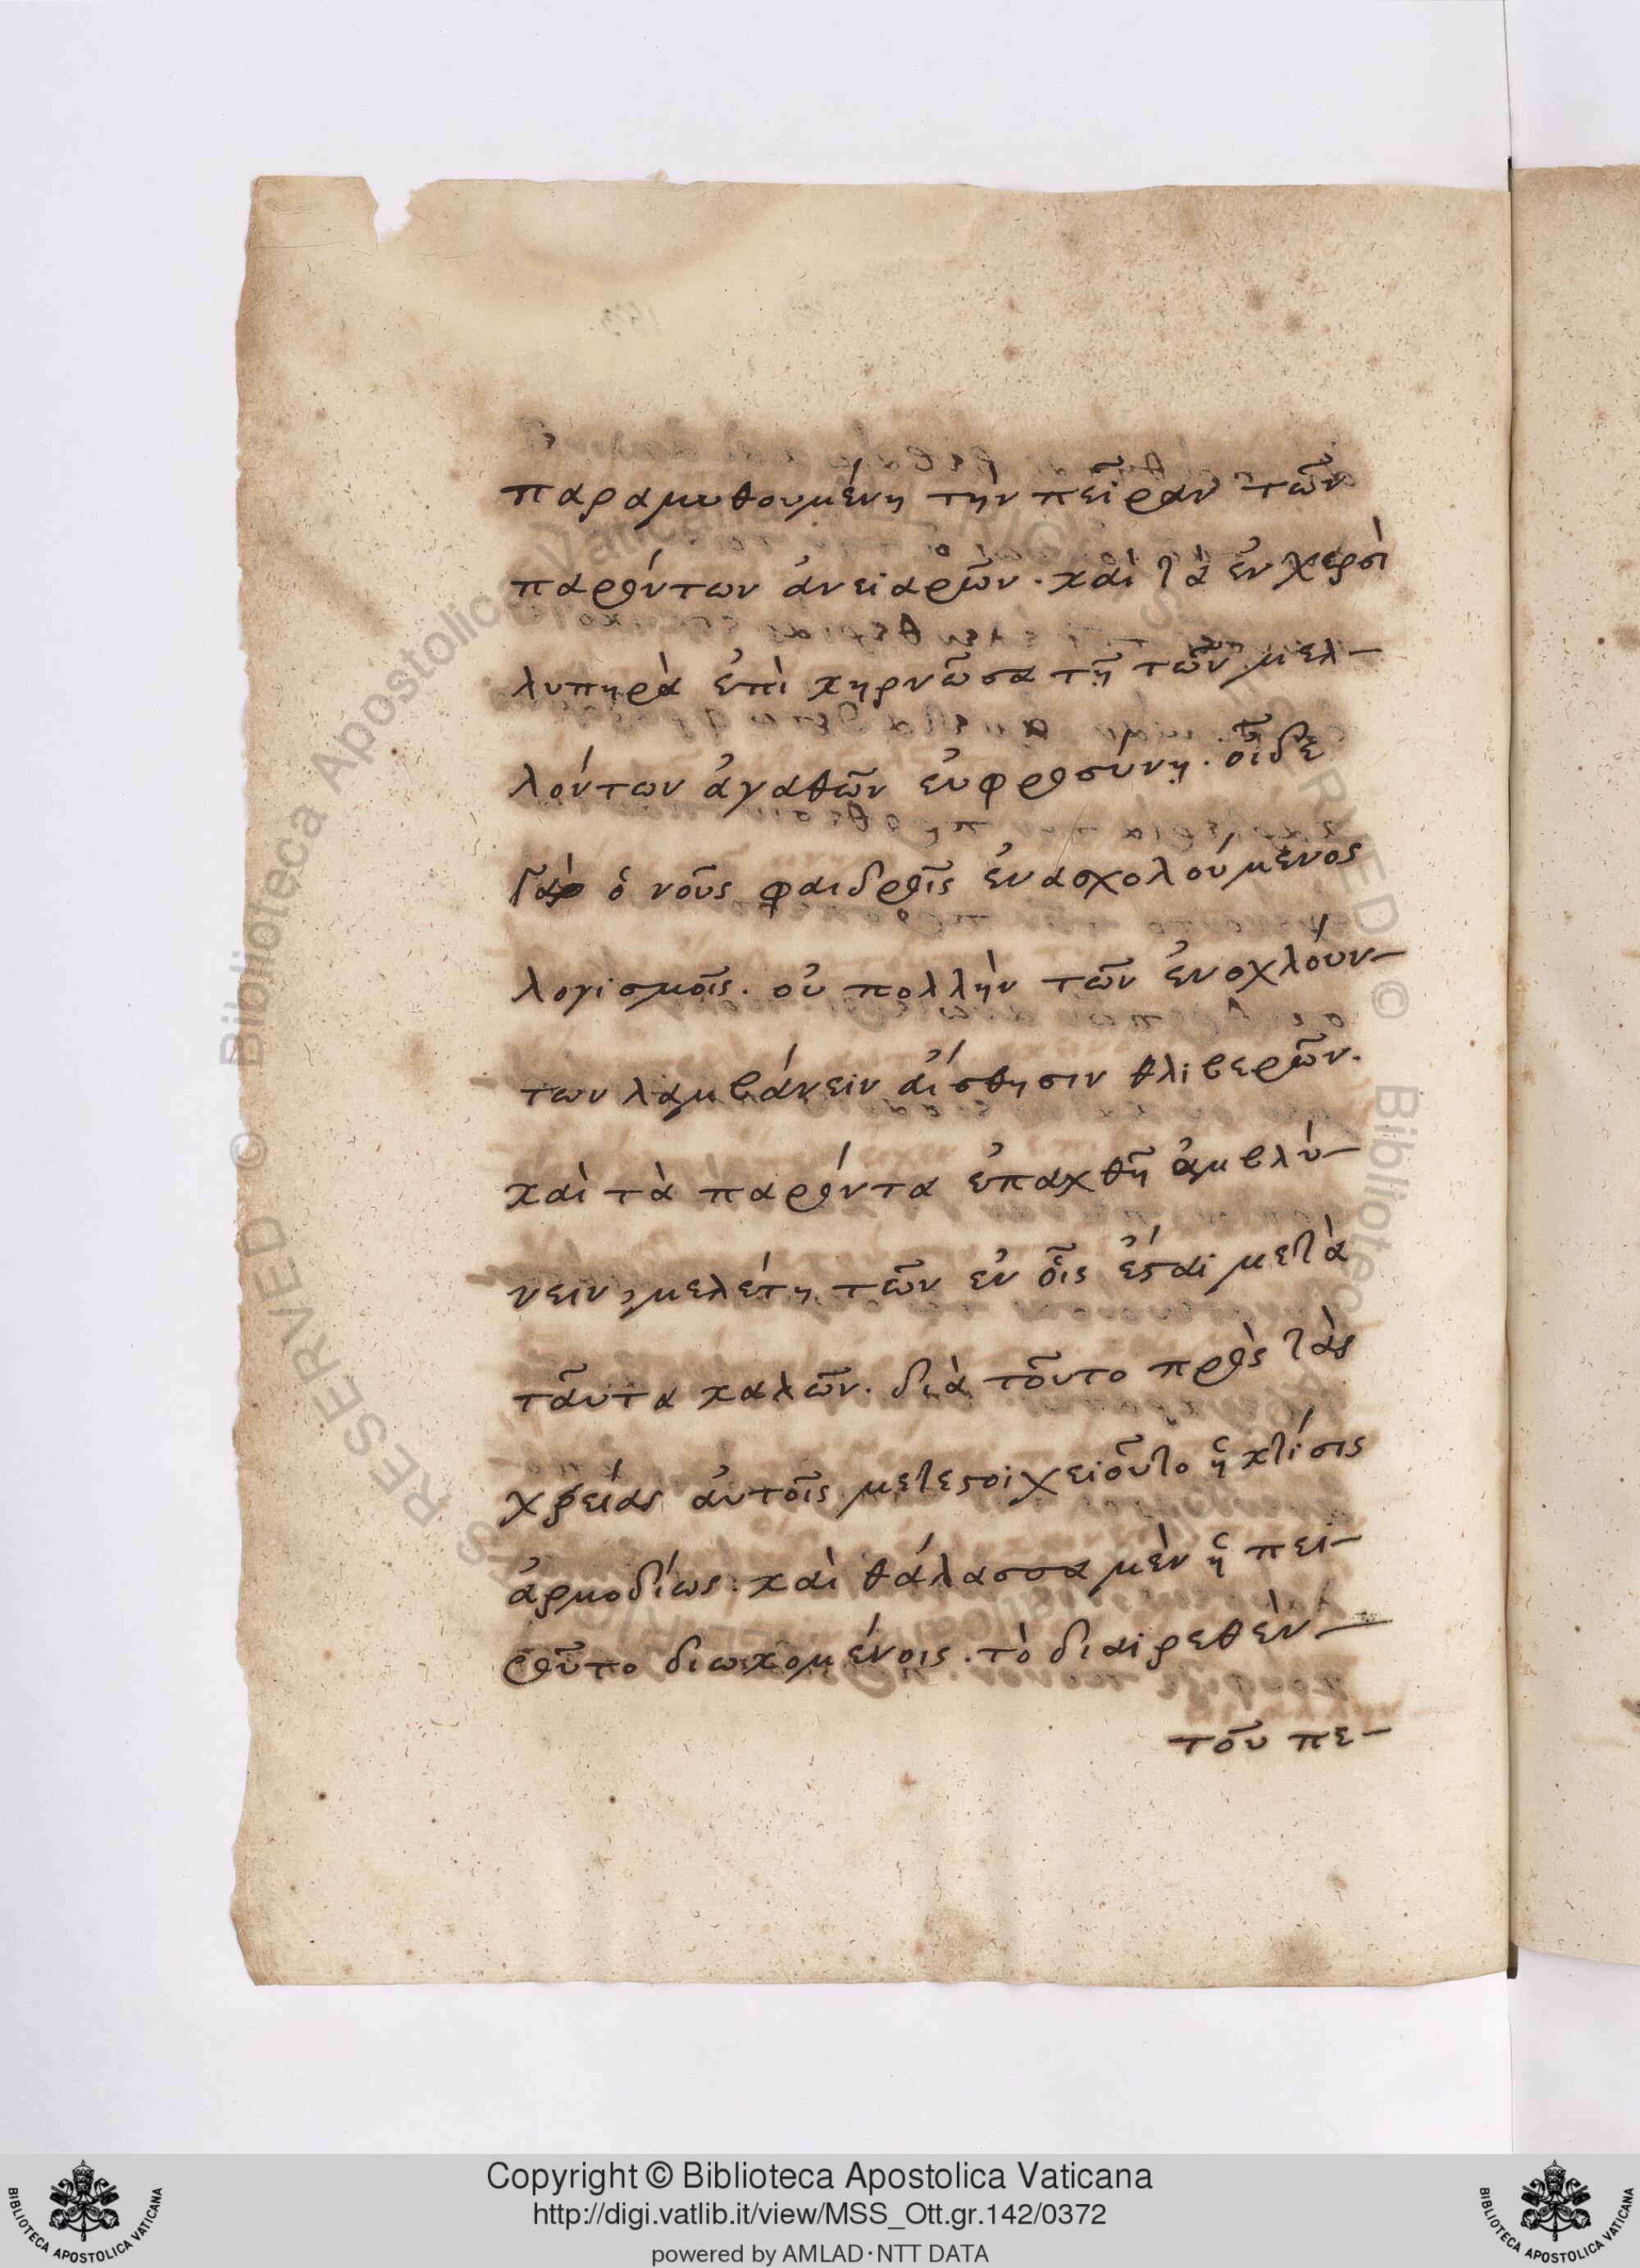 παραμυθουμένη τὴν πεῖραν τῶν
παρόντων ἀνειαρῶν. καὶ τὰ ἐν χερσὶ
λυπηρὰ ἐπὶ κηρνῶσα τῇ τῶν μελ-
λόντων ἀγαθῶν εὐφροσύνῃ. οἶδε
γὰρ ὁ νοῦς φαιδροῖς ἐνασχολούμενος
λογισμοῖς. οὐ πολλὴν τῶν ἐνοχλούν-
των λαμβάνειν αἴσθησιν θλιβερῶν.
καὶ τὰ παρόντα ἐπαχθῆ ἀμβλύ-
νειν, μελέτῃ τῶν ἐν οἷς ἔσται μετὰ
ταῦτα καλῶν. διὰ τοῦτο πρὸς τὰς
χρείας αὐτοῖς μετεστοιχειοῦτο ἡ κτίσις
ἁρμοδίως. καὶ θάλασσα μὲν ἠπει-
ροῦτο διωκομένοις. τὸ διαιρεθὲν
τοῦ πε-
Copyright © Biblioteca Apostolica Vaticana
http://digi.vatlib.it/view/MSS_Ott.gr.142/0372
powered by AMLAD·NTT DATA
BIBLIOTECA APOSTOLICA VATICANA
BIBLIOTECA APOSTOLICA VATICANA